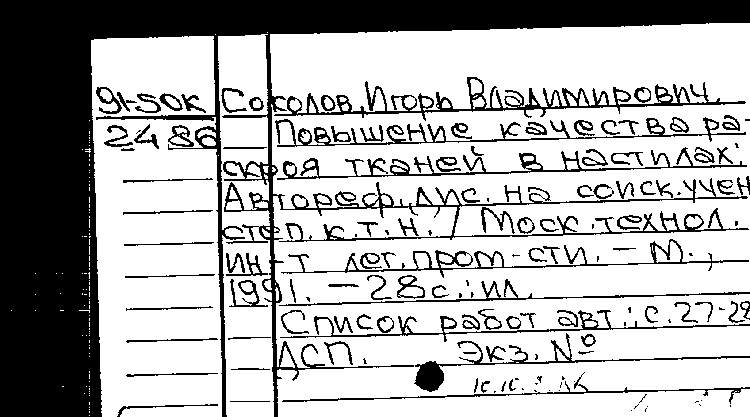 91-50К Соколов, Игорь Владимирович.
2486 Повышение качества ра-
скроя тканей в настилах:
Автореф. дис. на соиск. учен
степ. к.т.н. / Моск. технол.
ин-т лег. пром-сти. - М.,
1991. - 28 с.: ил.
Список работ авт.: с. 27-28
ДСП. Экз. №